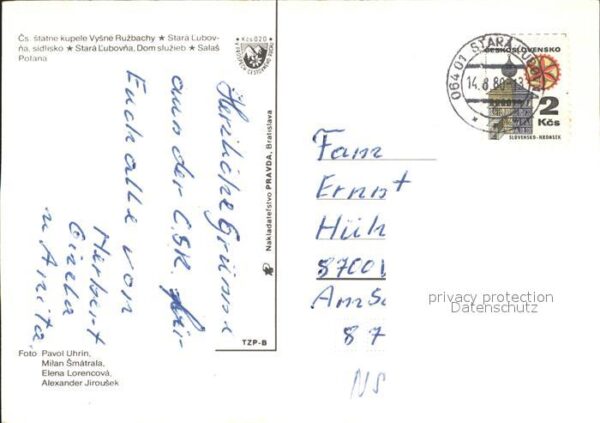 Čs. štatne kupele Vyšne Ružbachy ★ Stará Ľubov-
ňa, sídlisko ★ Stará Ľubovňa, Dom služieb ★ Salaš
Poľana
Kčs 0,20
Herzliche Grüsse
aus der ČSR für
Euch alle von
Herbert
Gizela
u. Anita
Nakladateľstvo PRAVDA, Bratislava
TZP-B
Foto: Pavol Uhrin,
Milan Šmátrala,
Elena Lorencová,
Alexander Jiroušek
064 01 STARÁ ĽUBOVŇA
14.8.80-13
ČESKOSLOVENSKO
2
Kčs
SLOVENSKO-KRONSEK
Fam
Ernst
Hüh
8700
Am
87
privacy protection
Datenschutz